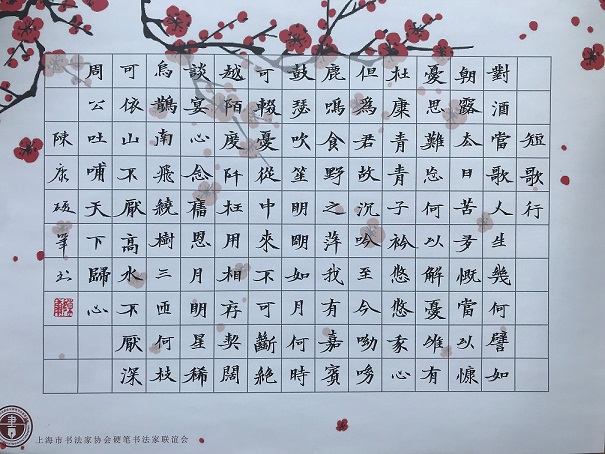 短歌行
對酒當歌人生幾何譬如
朝露去日苦多慨當以慷
憂思難忘何以解憂惟有
杜康青青子衿悠悠我心
但為君故沉吟至今呦呦
鹿鳴食野之萍我有嘉賓
鼓瑟吹笙明明如月何時
可輟憂從中來不可斷絕
越陌度阡枉用相存契闊
談宴心念舊恩月明星稀
烏鵲南飛繞樹三匝何枝
可依山不厭高水不厭深
周公吐哺天下歸心
陳康
上海市书法家协会硬笔书法家联谊会